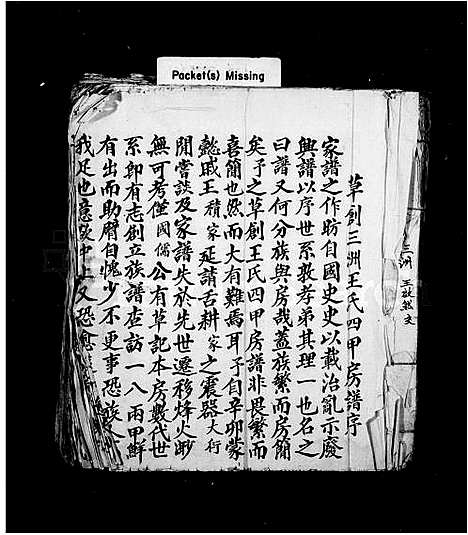 Packet(s) Missing
草創三洲王氏四甲房譜序
家譜之作昉自國史史以載治亂示廢
興譜以序世系教孝弟其理一也名之
曰譜又何分族與房哉蓋族繁而房簡
矣予之草創王氏四甲房譜非畏繁而
喜簡也然而大有難焉耳予自辛卯蒙
懿戚王積家延請舌耕家之震器大行
閒嘗談及家譜失於先世遷移烽火斷
無可考僅國儒公有草記本房數代世
系卽有志創立族譜查訪一八兩甲鮮
有出而助厥自愧少不更事恐族人
我足也意欲中止又恐愈
三洲 王